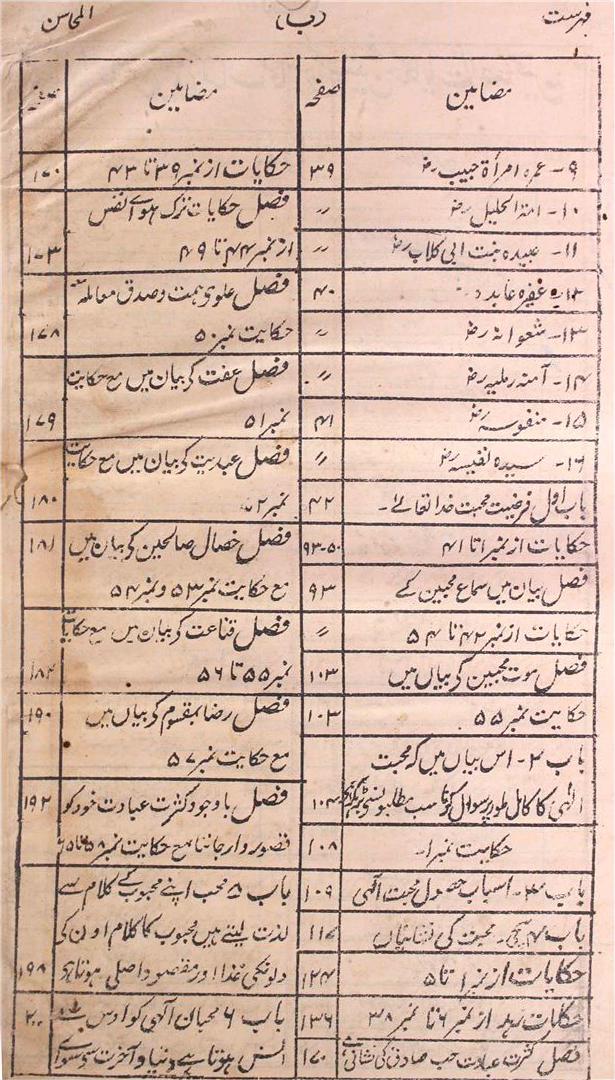 فہرست (ب) المحاسن
مضامین صفحہ
۹- عمرہ امرأۃ حبیب رض ۳۹
۱۰- امۃ الجلیل رض ״
۱۱- عبیدہ بنت ابی کلاب رض ״
۱۲- عفیرہ عابدہ ۴۰
۱۳- شعوانہ رض ״
۱۴- آمنہ رملیہ رض ״
۱۵- منفوسہ رض ۴۱
۱۶- سیدہ نفیسہ رض ״
باب اول فرضیت محبت خدا تعالےٰ- ۴۲
حکایات از نمبر ۱ تا ۴۱ ۵۰-۹۳
فصل بیان میں سماع محبین کے ۹۳
حکایات از نمبر ۴۲ تا ۵۴ ״
فصل موت محبین کے بیاں میں ۱۰۳
حکایت نمبر ۵۵ ۱۰۳
باب ۲- اس بیاں میں کہ محبت
الٰہی کا کامل طور پر سوال کرنا سب مطلبو نسے ۱۰۴
حکایت نمبر ۱- ۱۰۸
باب ۳- اسباب حصول محبت الٰہی ۱۰۹
باب ۴ محبت کی نشانیاں ۱۱۶
حکایات از نمبر ۱ تا ۵ ۱۲۴
حکایات زہد از نمبر ۶ تا نمبر ۳۸ ۱۳۶
فصل کثرت عبادت حب صادق کی نشانی ہے ۱۷۰
مضامین صفحہ
حکایات از نمبر ۳۹ تا ۴۳ ۱۷۰
فصل حکایات ترک ہوائے نفس
از نمبر ۴۴ تا ۴۹ ۱۷۳
فصل علوی ہمت و صدق معاملہ
حکایت نمبر ۵۰ ۱۷۸
فصل عفت کے بیان میں مع حکایت
نمبر ۵۱ ۱۷۹
فصل عبدیت کے بیان میں مع حکایت
نمبر ۵۲ ۱۸۰
فصل خصال صالحین کے بیان میں ۱۸۱
مع حکایت نمبر ۵۳ و نمبر ۵۴
فصل قناعت کے بیان میں مع حکایات
نمبر ۵۵ تا ۵۶ ۱۸۴
فصل رضا بمقسوم کے بیاں میں ۱۹۰
مع حکایت نمبر ۵۷
فصل باوجود کثرت عبادت خود کو ۱۹۲
قصور وار جاننا مع حکایت نمبر ۵۸ تا
باب ۵ محب اپنے محبوب کے کلام سے
لذت لیتے ہیں محبوب کا کلام اون کی
دلونکی غذا اور مقصود اصلی ہوتا ہی ۱۹۸
باب ۶ محبان الٰہی کو اوس سے
انس ہوتا ہے دنیا و آخرت